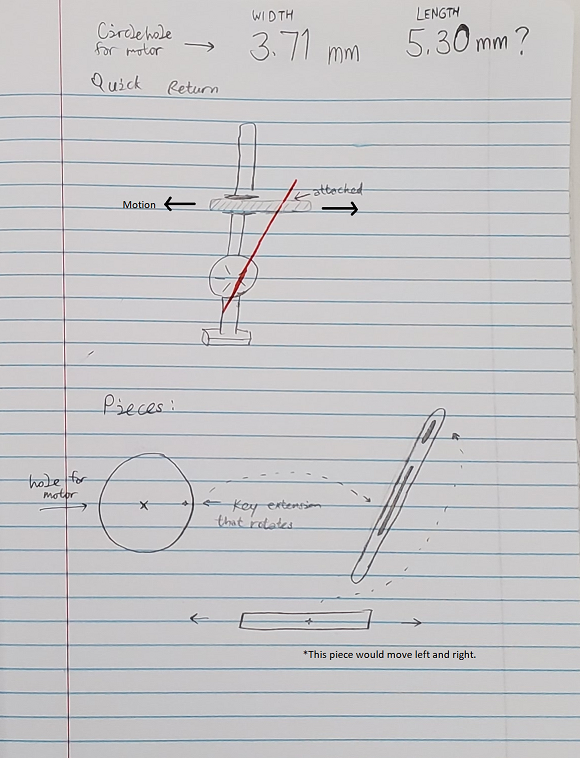 WIDTH LENGTH
Circle hole
for motor → 3.71 mm 5.30 mm?
Quick Return
attached
Motion
Pieces:
hole for
motor
Key extension
that rotates
*This piece would move left and right.